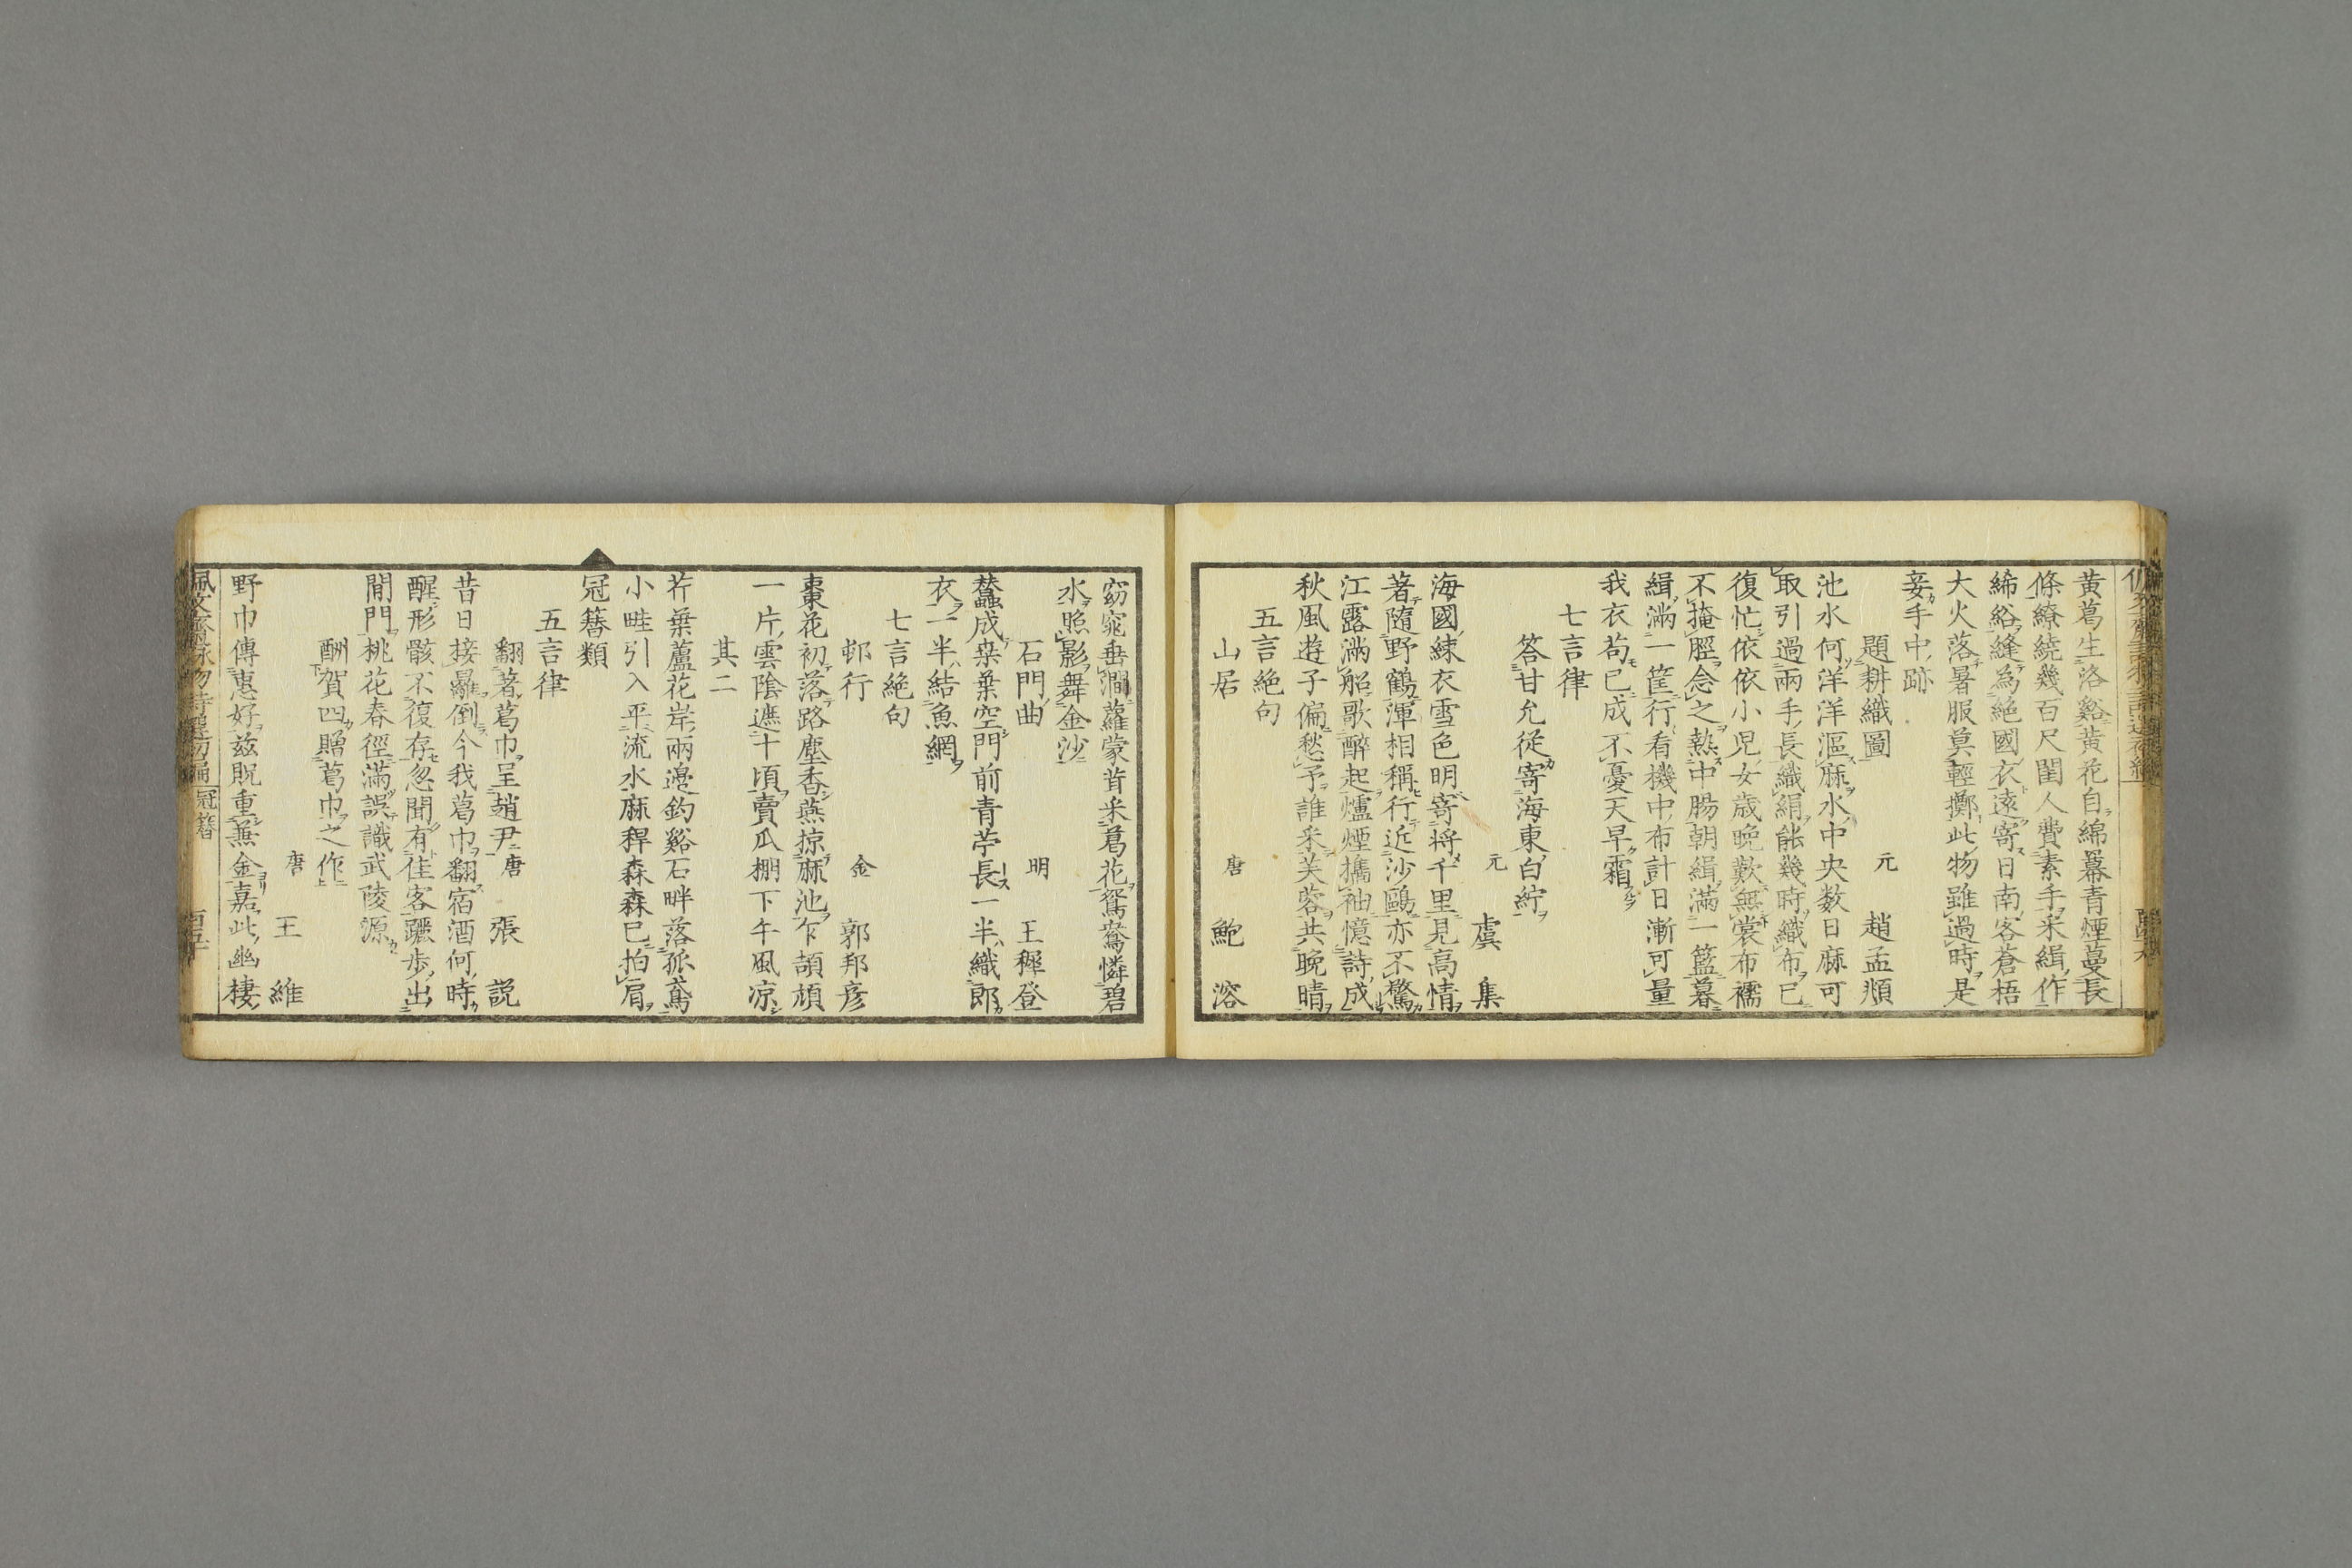 黄葛生洛谿黄花自綿羃青煙蔓長
條繚繞幾百尺閨人費素手采緝作
絺綌縫為絕國衣遠寄日南客蒼梧
大火落暑服莫輕擲此物雖過時是
妾手中跡
題耕織圖 元 趙孟頫
池水何洋洋漚麻水中央数日麻可
取引過兩手長織絹能幾時織布已
復忙依依小児女歳晩歎無裳布襦
不掩脛念之熱中腸朝緝滿一籃暮
緝滿一筐行看機中布計日漸可量
我衣苟已成不憂天早霜
七言律
答甘允從寄海東白紵
元 虞集
海國練衣雪色明寄将千里見高情
著隨野鶴渾相稱行近沙鷗亦不驚
江露満船歌醉起爐煙攜袖憶詩成
秋風遊子偏愁予誰采芙蓉共晩晴
五言絕句
山居 唐 鮑溶
窈窕垂澗蘿蒙茸采葛花鴛鴦憐碧
水照影舞金沙
石門曲 明 王穉登
蠶成桒葉空門前青苧長一半織郎
衣一半結魚網
七言絕句
邨行 金 郭邦彦
棗花初落路塵香燕掠麻池乍頡頏
一片雲陰遮十頃賣瓜棚下午風凉
其二
芥葉蘆花岸兩邊釣谿石畔落孤鳶
小畦引入平流水麻稗森森已拍肩
冠簪類
五言律
翻著葛巾呈趙尹 唐 張説
昔日接䍦倒今我葛巾翻宿酒何時
醒形骸不復存忽聞有佳客躧歩出
閒門桃花春徑滿誤識武陵源
酬賀四贈葛巾之作
唐 王維
野巾傳惠好茲貺重兼金嘉此幽棲
佩文齋詠物詩選初編 冠簪